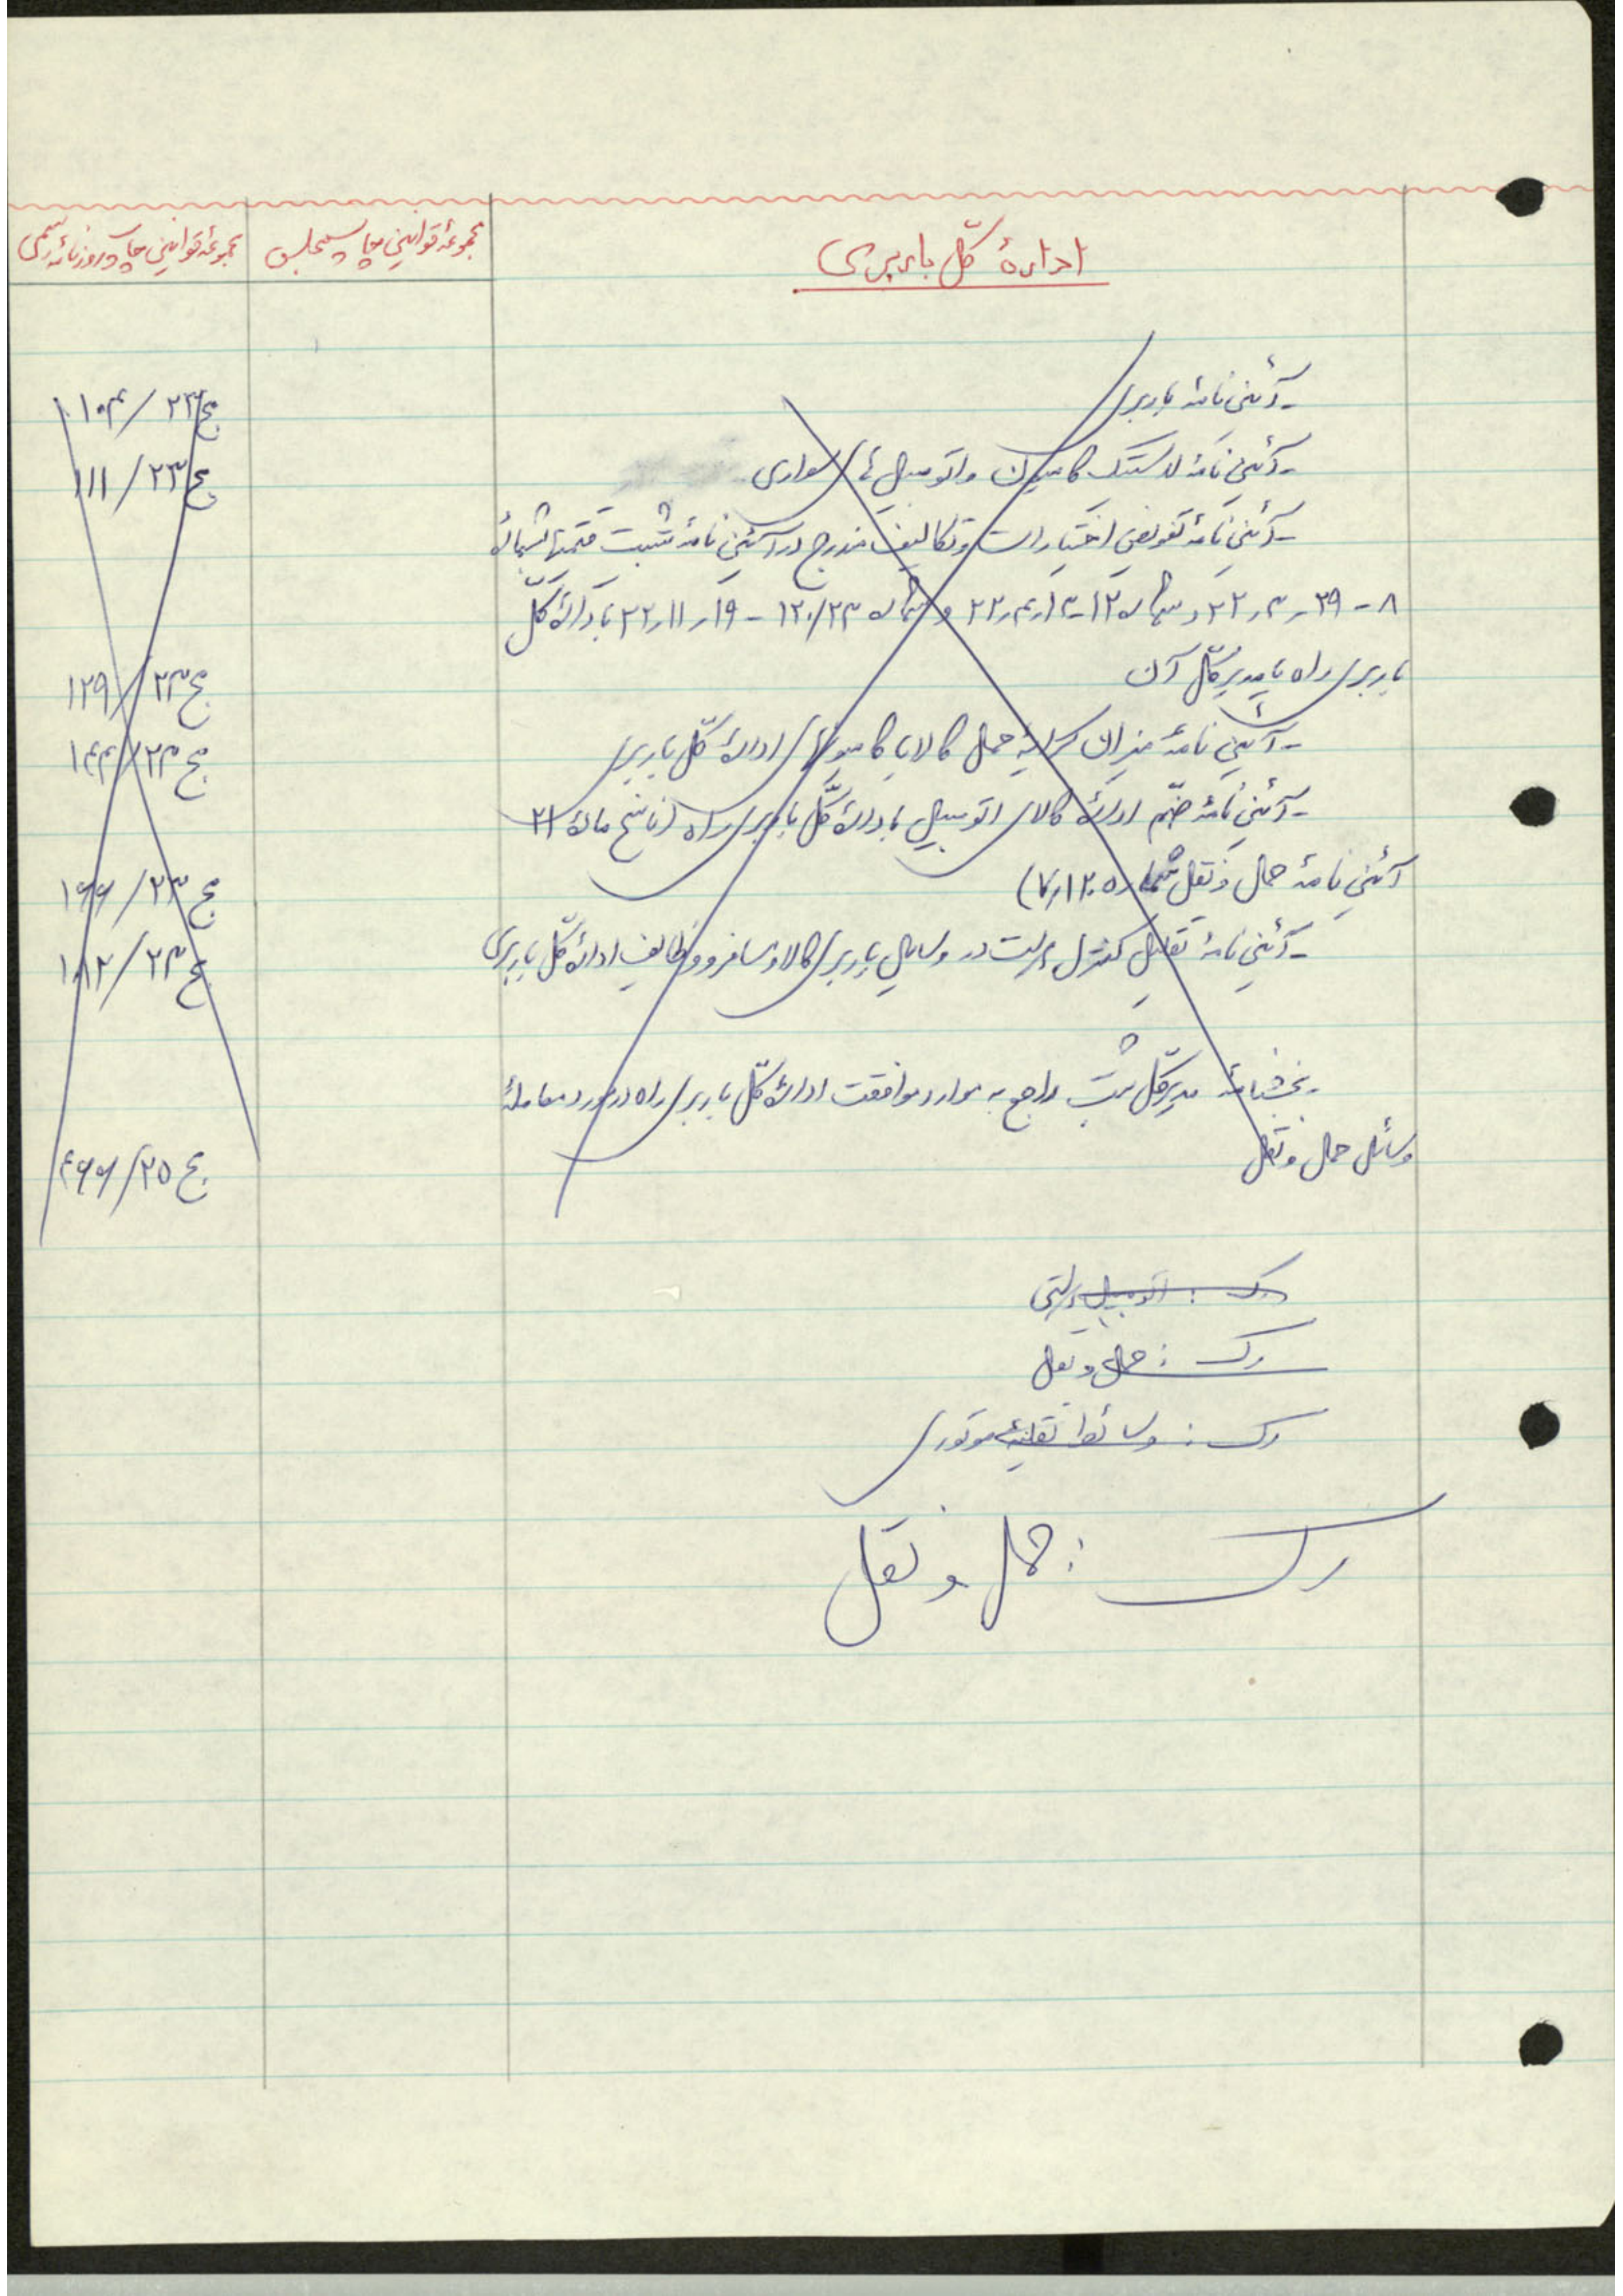 ادارهٔ کلّ باربری
مجموعهٔ قوانین چاپ مجلس
مجموعهٔ قوانین چاپ روزنامهٔ رسمی
- آئین نامهٔ باربری
مج ۲۳/ ۱۰۴
- آئین نامهٔ لاستیک کامیون و اتومبیل های سواری
مج ۲۳/ ۱۱۱
- آئین نامهٔ تفویض اختیارات و تکالیف مندرج در آئین نامهٔ تثبیت قیمتها شمارهٔ
۸ - ۲۹ر۳ر۲۲ و شماره ۱۲ - ۱۳ر۴ر۲۲ و شماره ۱۲۰/۲۳ - ۱۹ر۱۱ر۲۲ بادارهٔ کلّ
باربری راه یا مدیر کلّ آن
مج ۲۳/ ۱۲۹
- آئین نامهٔ میزان کرایهٔ حمل کالا با کامیونهای ادارهٔ کلّ باربری
مج ۲۳/ ۱۴۴
- آئین نامهٔ ضمّ ادارهٔ کالای اتومبیل بادارهٔ کلّ باربری راه (ناسخ مادهٔ ۲۱
آئین نامهٔ حمل و نقل شماره ۷٫۱۲۰۵)
مج ۲۳/ ۱۶۶
- آئین نامهٔ تقلیل کنترل دولت در وسایل باربری کالا و مسافر و وظایف ادارهٔ کلّ باربری
مج ۲۳/ ۱۸۲
- بخشنامهٔ مدیر کلّ ثبت راجع به موارد موافقت ادارهٔ کلّ باربری راه در مورد معاملهٔ
وسائل حمل و نقل
مج ۲۵/ ۴۶۶
رک : اتومبیل دولتی
رک : حمل و نقل
رک : وسائط نقلیهٔ موتوری
رک : حمل و نقل